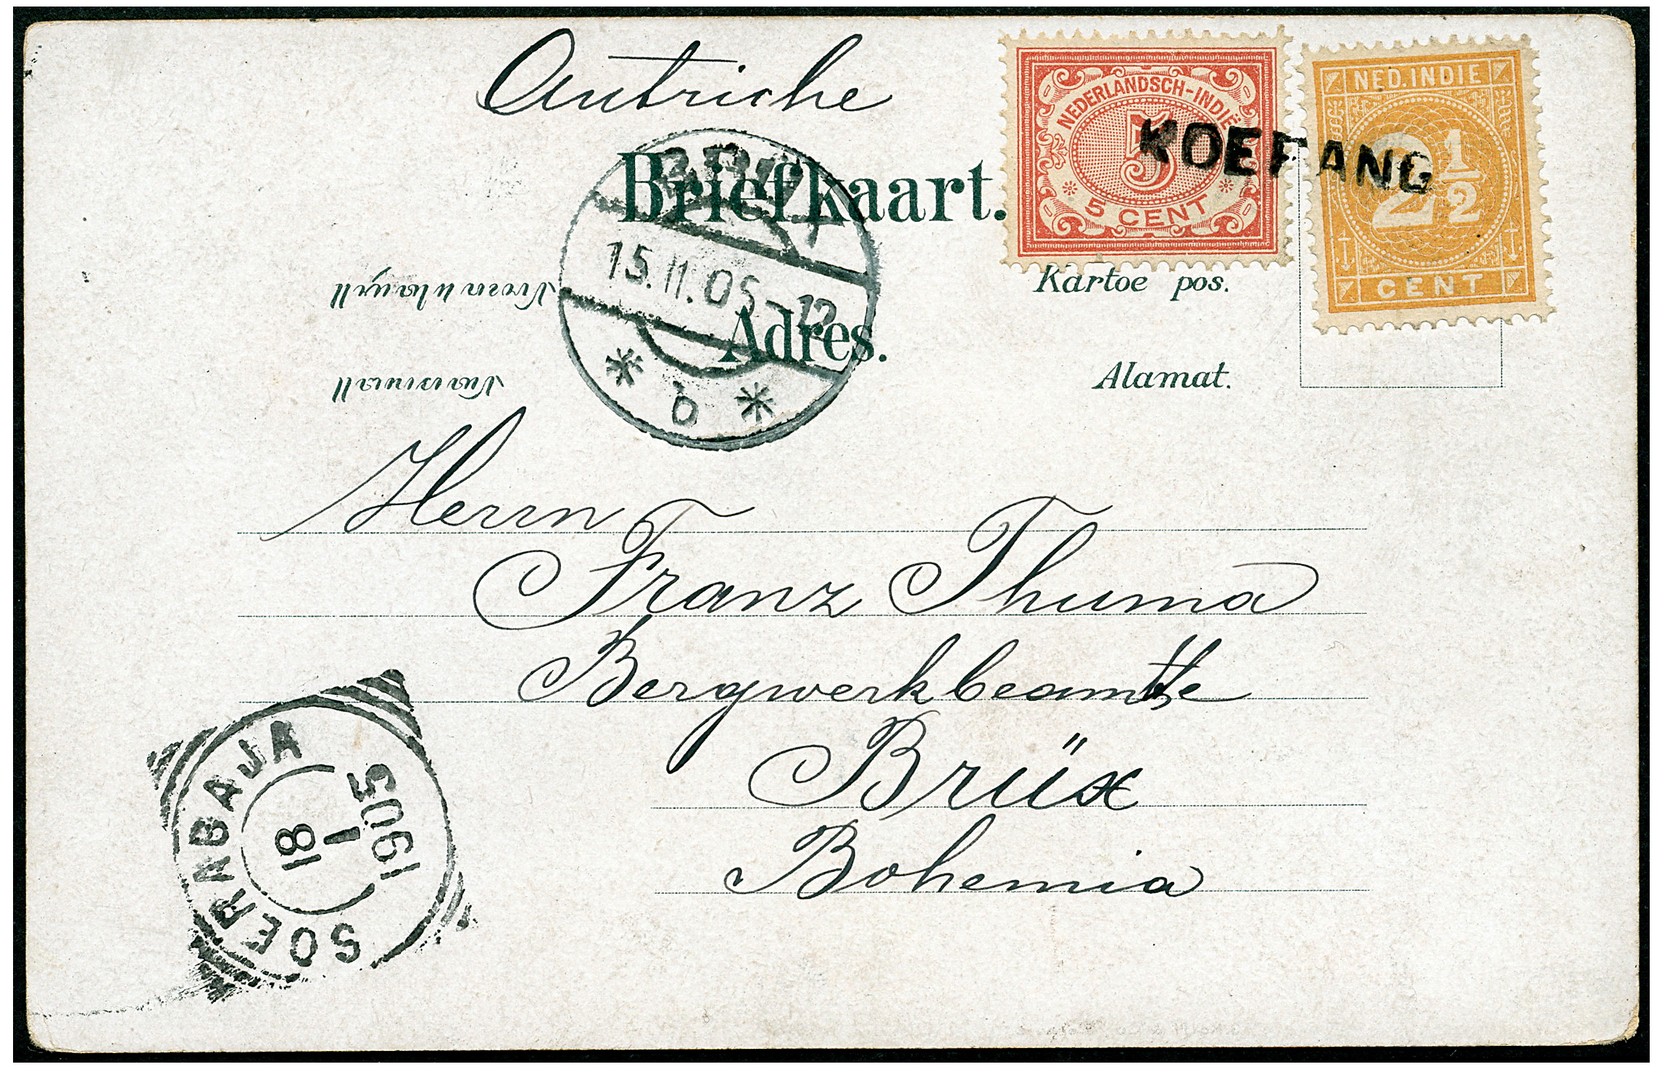 Autriche
NEDERLANDSCH-INDIË
5
5 CENT
NED.INDIE
2 1/2
CENT
KOEPANG
Briefkaart.
Kartoe pos.
Adres.
Alamat.
15.II.05-12
b
Herrn
Franz Thuma
Bergwerkbeamte
Brüx
Bohemia
SOERABAJA
18
1
1905